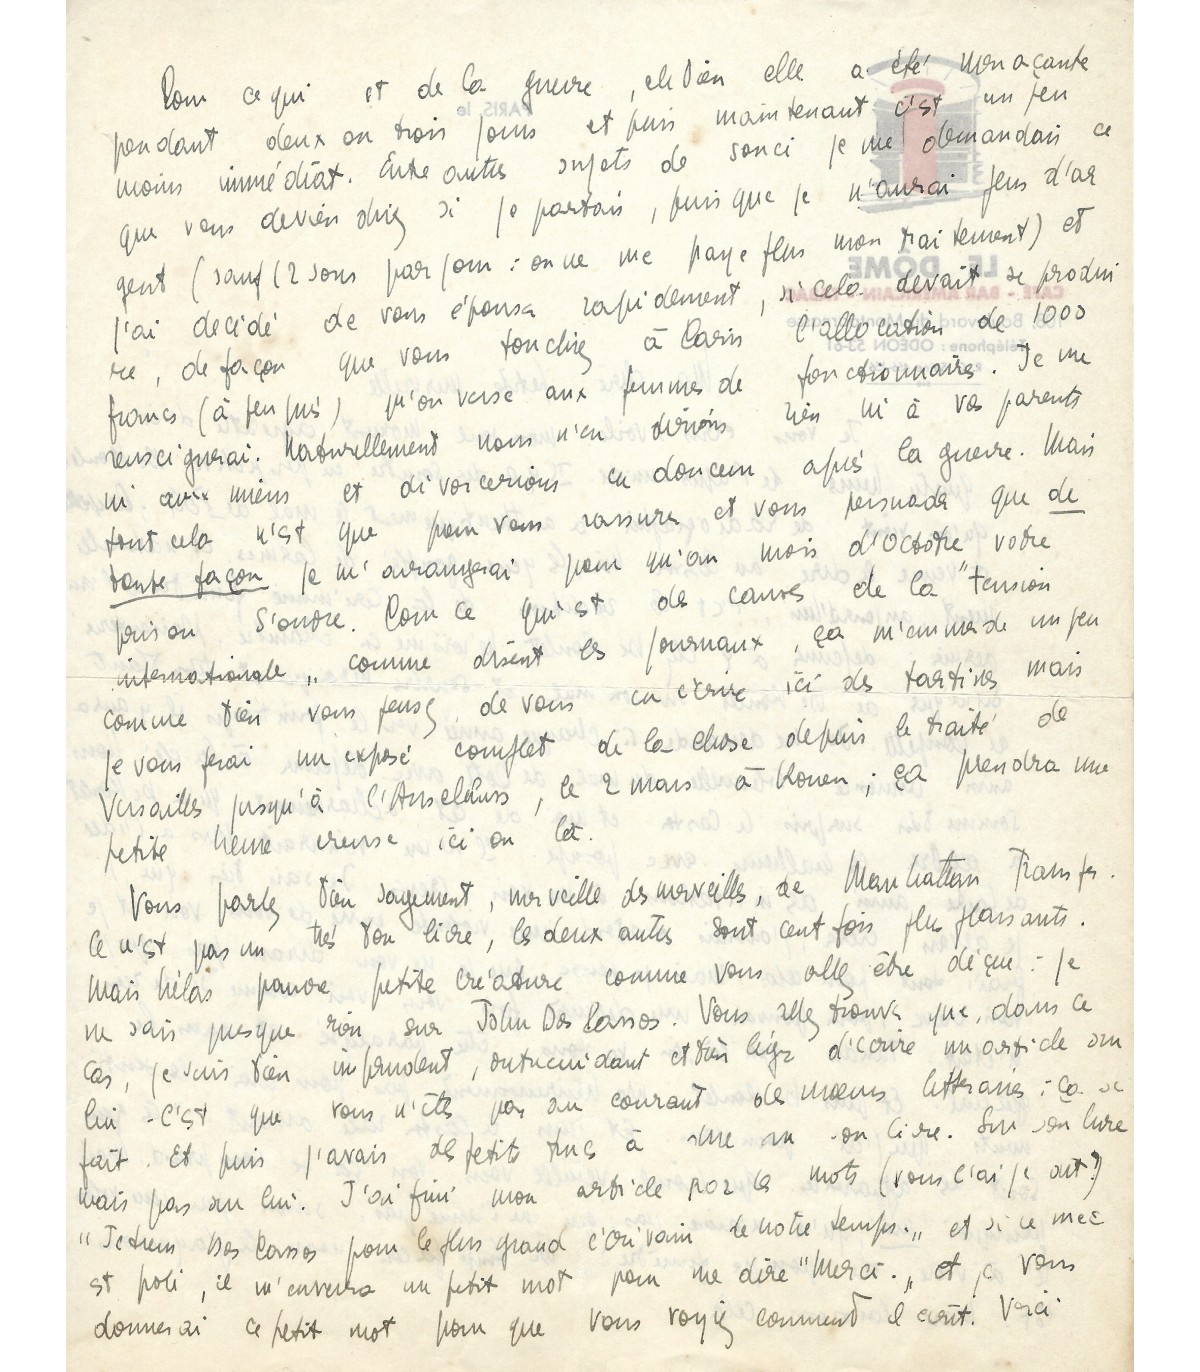 Pour ce qui est de la guerre, eh bien elle a été menaçante
pendant deux ou trois jours et puis maintenant c'est un peu
moins immédiat. Entre autres sujets de souci je me demandais ce
que vous deviendriez si je partais, puisque je n'aurai plus d'ar
gent (sauf 12 sous par jour : on ne me paye plus mon traitement) et
j'ai décidé de vous épouser rapidement, si cela devait se produi
re, de façon que vous touchiez à Paris l'allocation de 1000
francs (à peu près) qu'on verse aux femmes de fonctionnaires. Je me
renseignerai. Naturellement nous n'en dirions rien ni à vos parents
ni aux miens et divorcerions en douceur après la guerre. Mais
tout cela n'est que pour vous rassurer et vous persuader que de
toute façon je m'arrangerai pour qu'au mois d'Octobre votre
prison s'ouvre. Pour ce qui est des causes de la "tension
internationale" comme disent les journaux, ça m'emmerde un peu
comme bien vous pensez, de vous en écrire ici des tartines mais
je vous ferai un exposé complet de la chose depuis le traité de
Versailles jusqu'à l'Anschluss, le 2 mars à Rouen ; ça prendra une
petite heure creuse ici ou là.
Vous parlez bien sagement, merveille des merveilles, de Manhattan Transfer.
Ce n'est pas un très bon livre, les deux autres sont cent fois plus plaisants.
Mais hélas pauvre petite créature comme vous allez être déçue : je
ne sais presque rien sur John Dos Passos. Vous allez trouver que, dans ce
cas, je suis bien imprudent, outrecuidant et bien léger d'écrire un article sur
lui - C'est que vous n'êtes pas au courant des mœurs littéraires : ça se
fait. Et puis j'avais des petits trucs à dire sur son livre. Sur son livre
mais pas sur lui. J'ai fini mon article par ces mots (vous l'ai je dit ?)
"Je tiens Dos Passos pour le plus grand écrivain de notre temps." et si ce mec
est poli, il m'enverra un petit mot pour me dire "Merci." et je vous
donnerai ce petit mot pour que vous voyiez comment il écrit. Voici